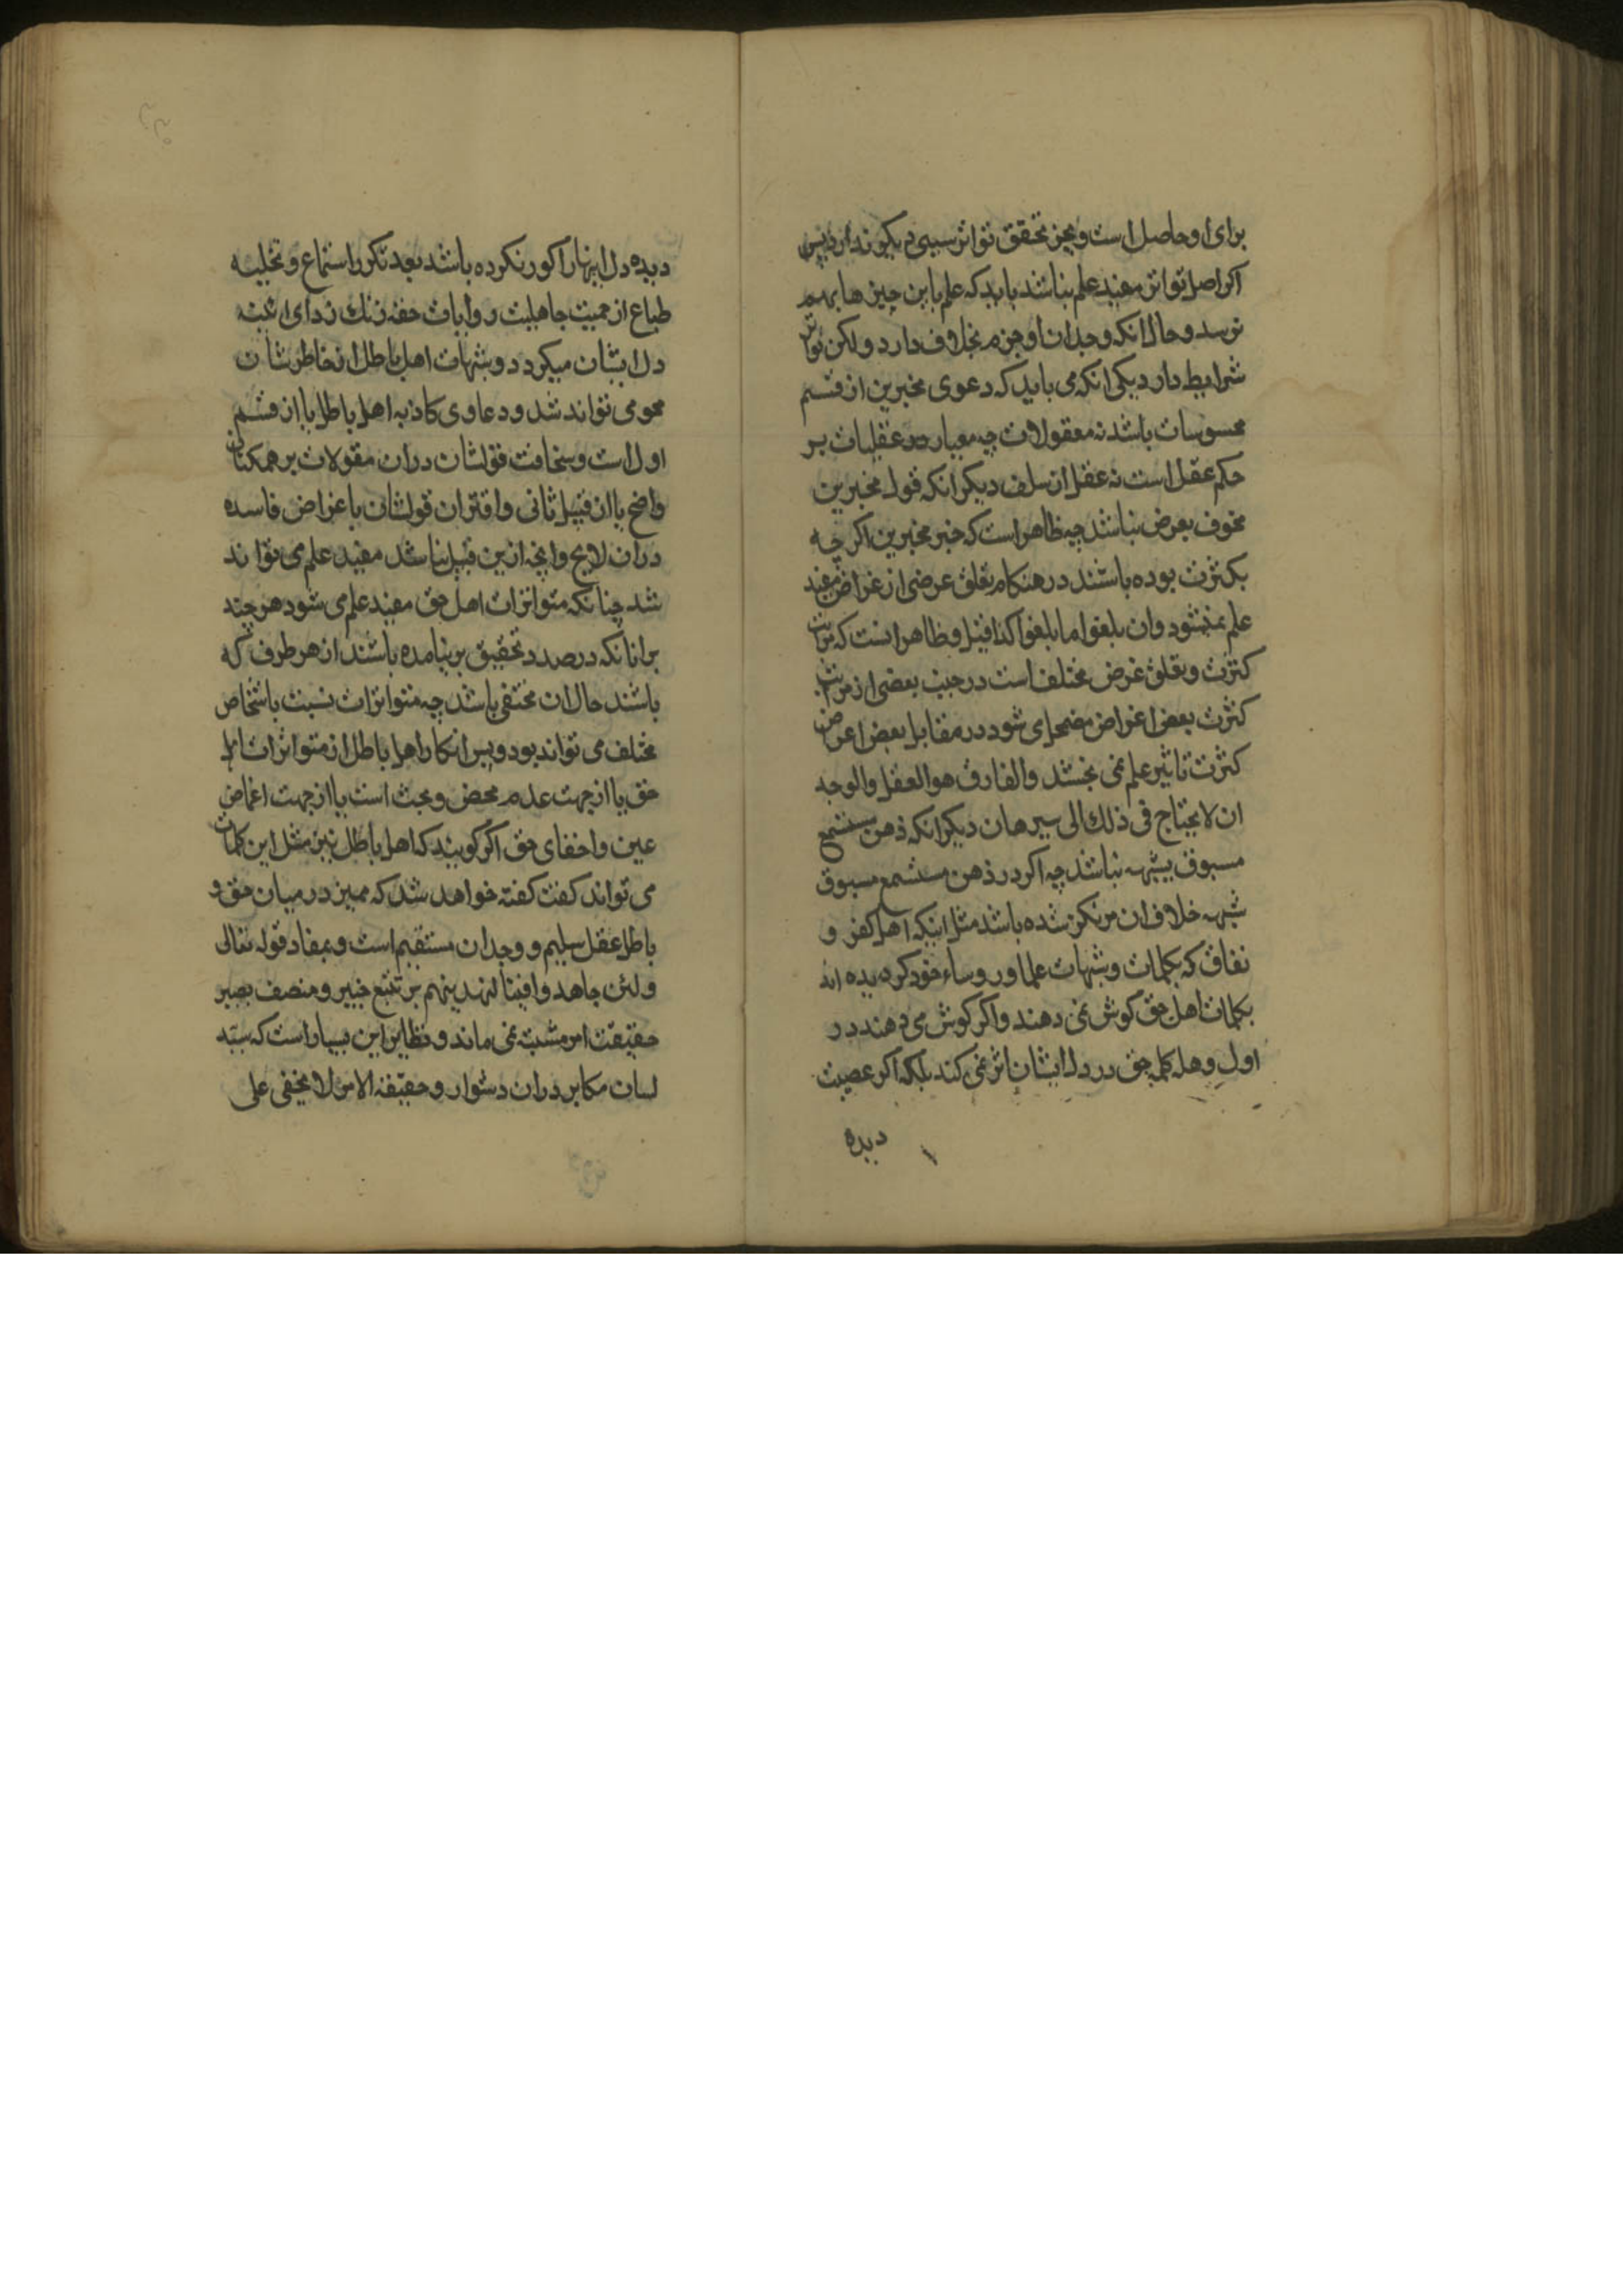 برای او حاصل است و بجز تحقق تواتر سببی دیگر ندارد پس
اکر اصل تواتر مفید علم نباشد باید که علم باین چیزها بهم
نرسد و حال انکه وجدان او جزم بخلاف دارد و لکن تواتر
شرایط دارد یکی انکه می باید که دعوی مخبرین از قسم
محسوسات باشد نه معقولات چه معیار در عقلیات بر
حکم عقل است نه عقل ان سلف دیکر انکه قول مخبرین
بغرض نباشد چه ظاهر است که خبر مخبرین اکر چه
بکثرت بوده باشند در هنکام تعلق غرضی از غراض مفید
علم نمیشود وان بلغوا ما بلغوا کذا قیل و ظاهر انست که مراتب
کثرت و تعلق غرض مختلف است در جنب بعضی از مراتب
کثرت بعض اغراض مضمحل می شود در مقابل بعض اغراض
کثرت تاثیر علم نمی بخشد والفارق هو العقل والوجه
ان لا یحتاج فی ذلك الی دیکر انکه ذهن مستمع
مسبوق بشبهه نباشد چه اکر در ذهن مستمع مسبوق
شبهه خلاف ان مرتکز شده باشد مثل اینکه اهل کفر و
نفاق که بکلمات و شبهات علما و روساء خود کرویده اند
بکلمات اهل حق کوش نمی دهند و اکر کوش می دهند در
اول وهله کلمه حق در دل ایشان اثر نمی کند بلکه اکر عصبیت
دیده
دیده دل اینها را کور نکرده باشد بعد تکرر استماع و تخلیه
طباع از حمیت جاهلیت روایات حقه زنك زدای
دل ایشان میکردد و شبهات اهل باطل از خاطر شان
محو می تواند شد و دعاوی کاذبه اهل باطل یا از قسم
اول است و سخافت قولشان دران مقولات بر همکنان
واضح یا از قبیل ثانی و اقتران قولشان باغراض فاسده
دران لایح وانچه ازین قبیل نباشد مفید علم می تواند
شد چنانکه متواترات اهل حق مفید علم می شود هر چند
برانانکه درصدد تحقیق بر نیامده باشند از هر طرف که
باشند حال ان مختفی باشد چه متواترات نسبت باشخاص
مختلف می تواند بود و پس انکار اهل باطل از متواترات اهل
حق یا از جهت عدم محض و بحث است یا از جهت اغماض
عین و اخفای حق اکر کویند که اهل باطل نیز مثل این کلمات
می تواند کفت کفته خواهد شد که ممیز در میان حق و
باطل عقل سلیم و وجدان مستقیم است و بمفاد قوله تعالی
ولئن جاهدوا فینا لنهدینهم بر تتبع خبیر و منصف بصیر
حقیقت امر مشتبه نمی ماند و نظایر این بسیار است که
لسان مکابر دران دشوار و حقیقة الامر لا یخفی علی